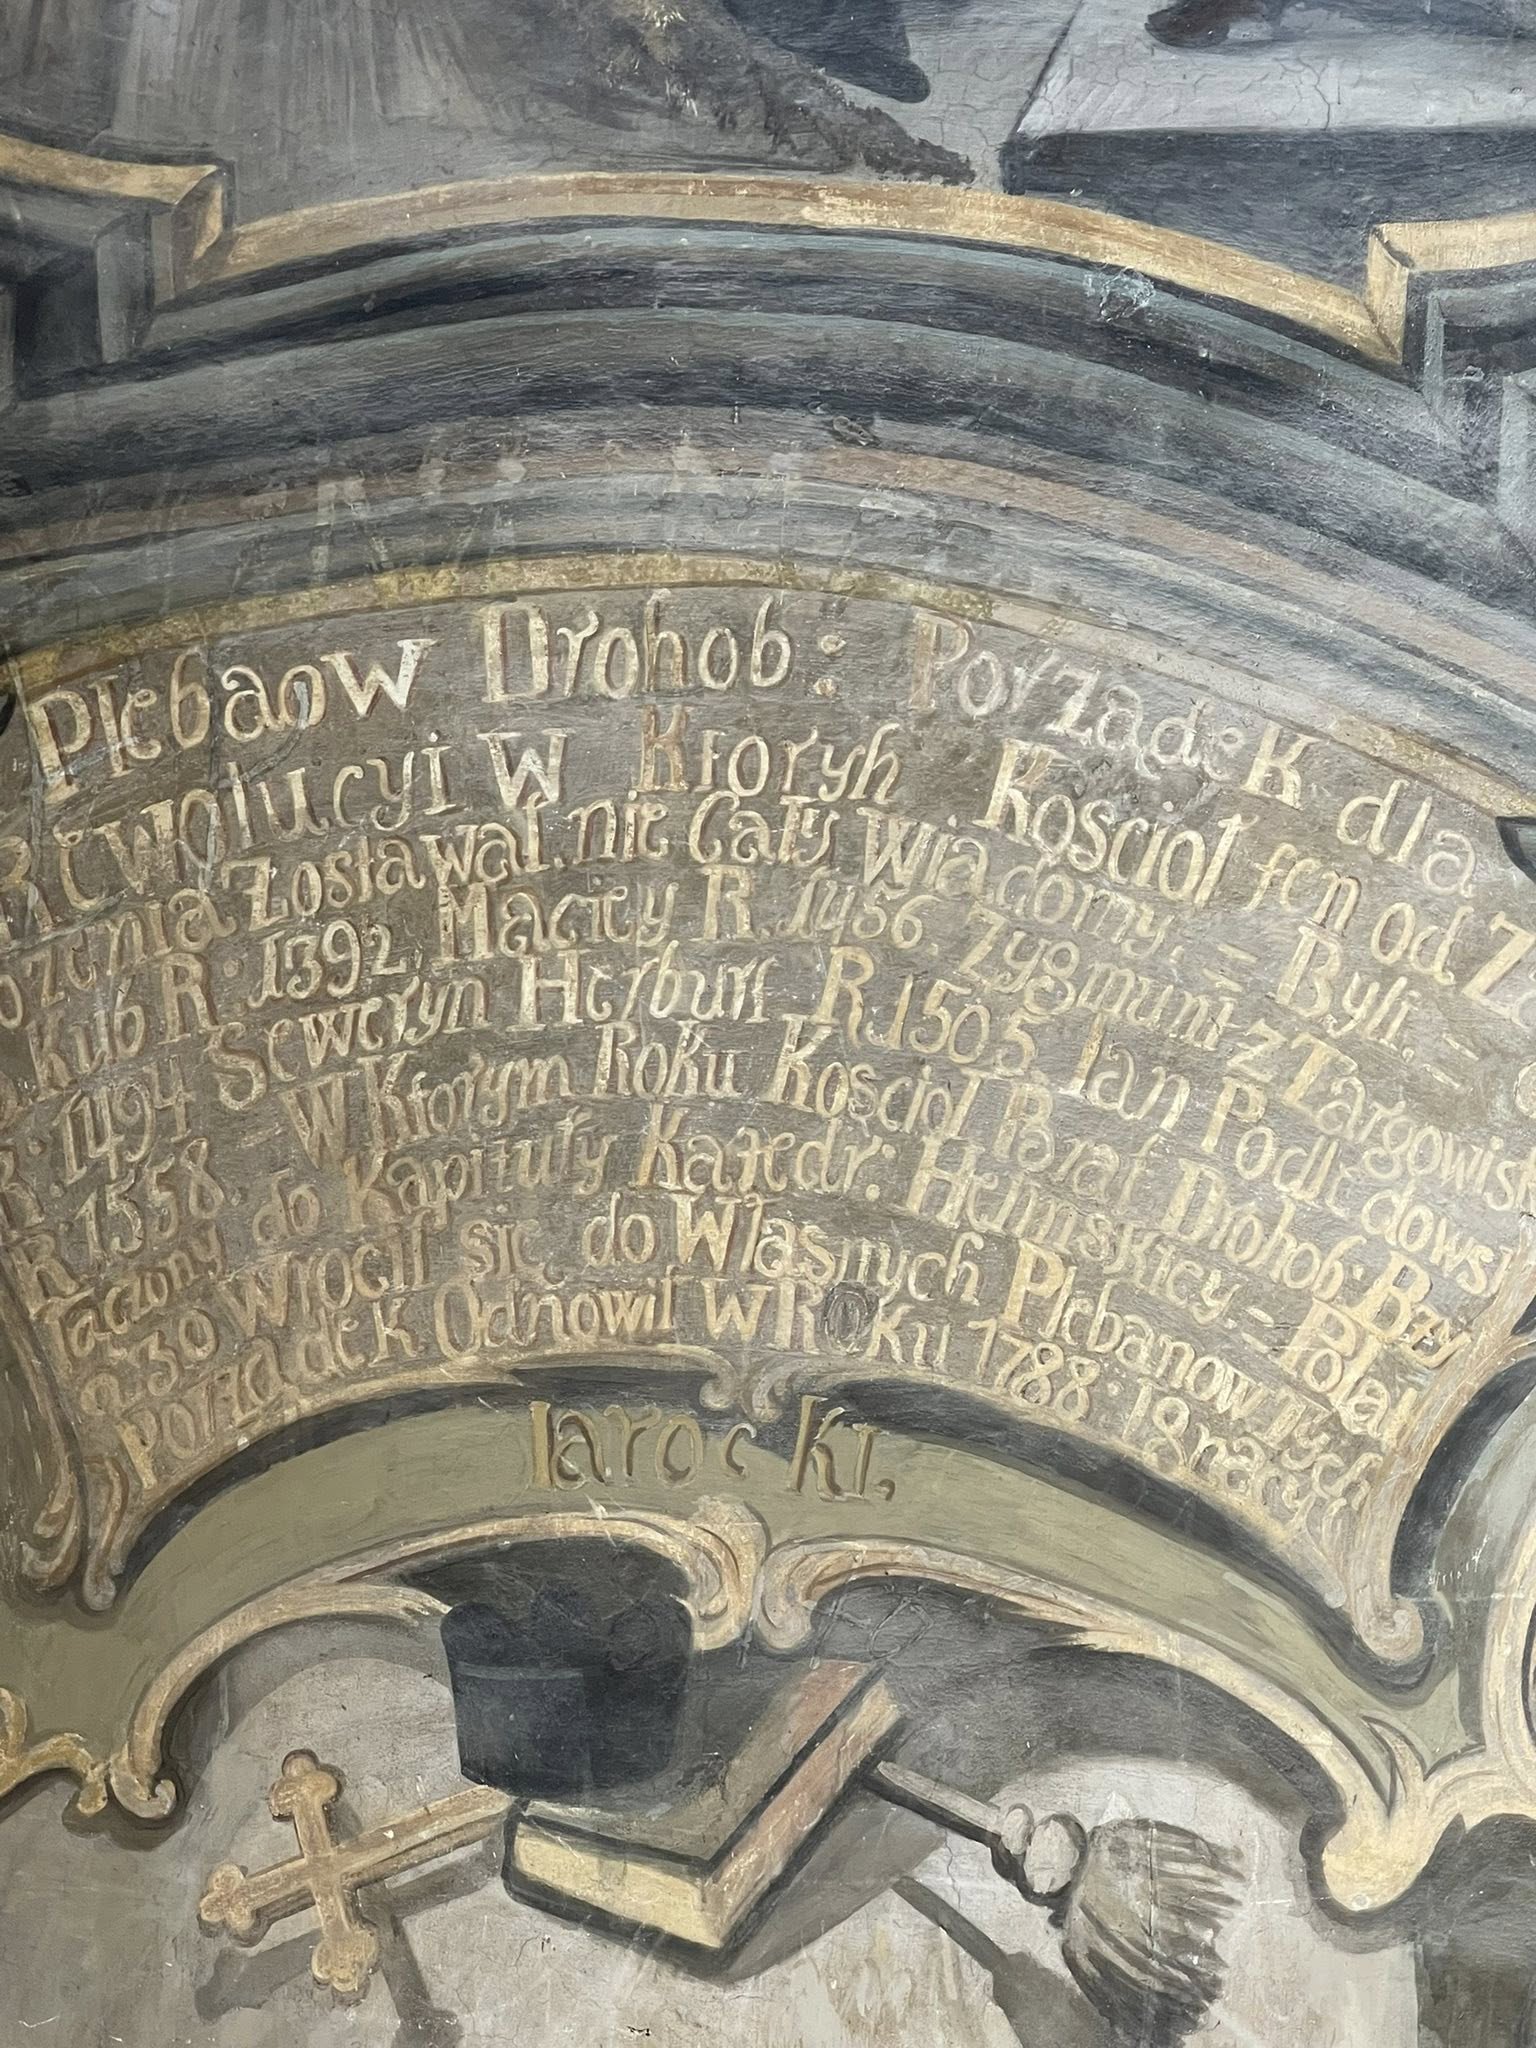 Plebaow Drohob: Porządek dla
Rewolucyi w Ktoryh Kosciol ten od Za
ozenia Zostawal nie Cały Wiadomy. = Byli. =
Kub R: 1392. Maciey R. 1456. Zygmunt z Targowisk
R. 1494 Seweryn Herburt R. 1505. Ian Podledowski
R. 1558. W Ktorym Roku Kosciol Paraf Drohob. Bzy
łaczony do Kapituły Katedr:
P. 30 wrocił się do Własnych Plebanow Tych
Porządek Odnowił W Roku 1788. Ignacy
Iarocki,